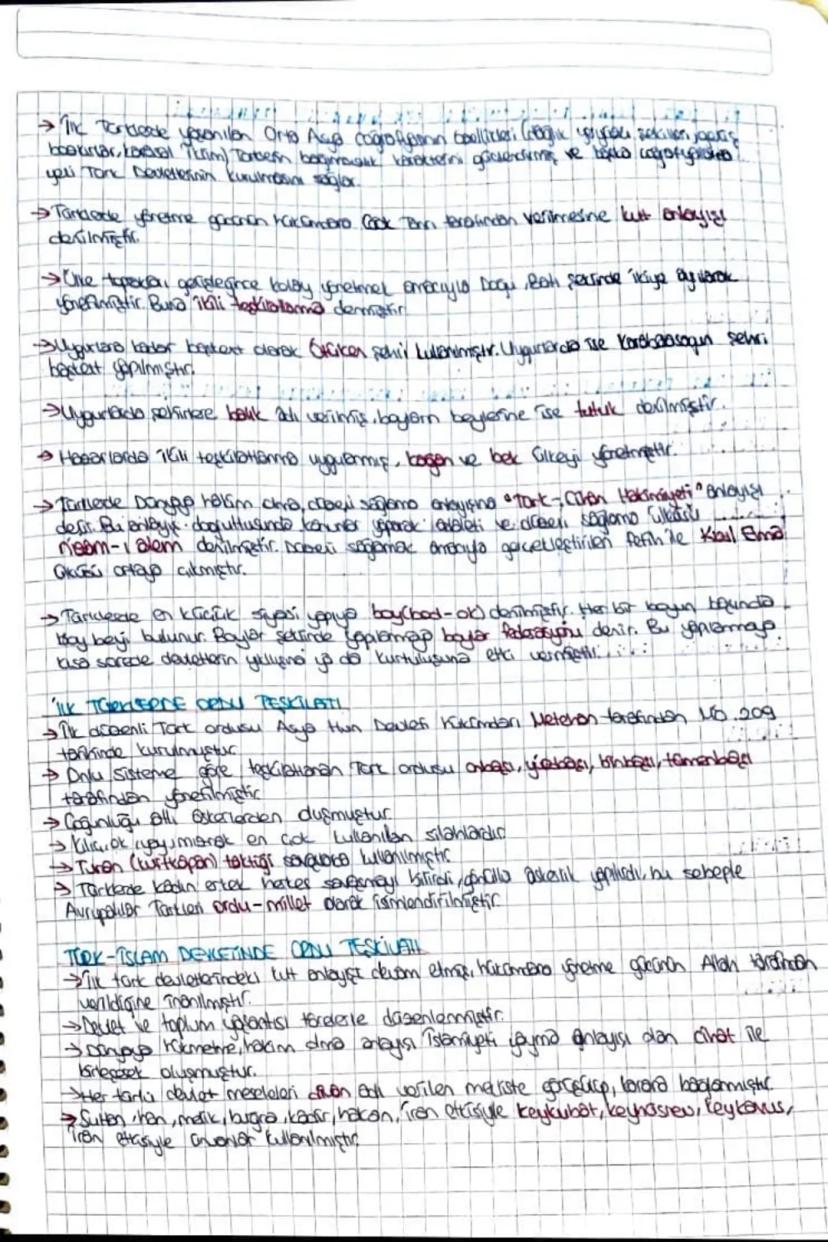 → İlk Türklerde yaşanılan Orta Asya coğrafyasının özellikleri (dağlık yeryüzü şekilleri, geniş
bozkırlar, karasal iklim) Türklerin bağımsızlık karakterini güçlendirmiş ve başka coğrafyalarda
yeni Türk Devletlerinin kurulmasını sağlar.
→ Türklerde yönetme gücünün hükümdara Gök Tanrı tarafından verilmesine kut anlayışı
denilmiştir.
→ Ülke toprakları genişleyince kolay yönetmek amacıyla Doğu, Batı şeklinde ikiye ayrılarak
yönetilmiştir. Buna ikili teşkilatlanma denmiştir.
→ Uygurlara kadar başkent olarak Ötüken şehri kullanılmıştır. Uygurlarda ise Karabalasagun şehri
başkent yapılmıştır.
→ Uygurlarda şehirlere balık adı verilmiş, boyların beylerine ise tutuk denilmiştir.
→ Hazarlarda ikili teşkilatlanma uygulanmış, kagan ve bek ülkeyi yönetmiştir.
→ Türklerde Dünyaya hakim olma, düzeni sağlama anlayışına "Türk-Cihan Hakimiyeti" anlayışı
denir. Bu anlayış doğrultusunda kanunlar yaparak adaleti ve düzeni sağlama ülküsü
nizam-ı alem denilmiştir. Düzeni sağlamak amacıyla gerçekleştirilen fetih ile Kızıl Elma
ülküsü ortaya çıkmıştır.
→ Türklerde en küçük siyasi yapıya boy(bod-ok) denilmiştir. Her bir boyun başında
boy beyi bulunur. Boylar şeklinde yapılanmaya boylar federasyonu denir. Bu yapılanmaya
kısa sürede devletlerin yıkılışına ya da kurtuluşuna etki vermiştir.
İLK TÜRKLERDE ORDU TEŞKİLATI
→ İlk düzenli Türk ordusu Asya Hun Devleti hükümdarı Metehan tarafından MÖ. 209
tarihinde kurulmuştur.
→ Onlu Sisteme göre teşkilatlanan Türk ordusu onbaşı, yüzbaşı, binbaşı, tümenbaşı
tarafından yönetilmiştir.
→ Çoğunluğu atlı askerlerden oluşmuştur.
→ Kılıç, ok, yay, mızrak en çok kullanılan silahlardır.
→ Turan (kurtkapanı) taktiği savaşlarda kullanılmıştır.
→ Türklerde kadın erkek herkes savaşmayı bilirdi, gönüllü askerlik yapılırdı, bu sebeple
Avrupalılar Türkleri ordu-millet olarak isimlendirilmiştir.
TÜRK-İSLAM DEVLETİNDE ORDU TEŞKİLATI
→ İlk türk devletlerindeki kut anlayışı devam etmiş, hükümdara yönetme gücünün Allah tarafından
verildiğine inanılmıştır.
→ Devlet ve toplum yaşantısı törelerle düzenlenmiştir.
→ Dünyaya hükmetme, hakim olma anlayışı İslamiyeti yayma anlayışı olan cihat ile
birleşerek oluşmuştur.
→ Her türlü devlet meseleleri divan adı verilen mecliste görüşülüp, karara bağlanmıştır.
→ Sultan, han, melik, bugra, kadir, hakan, İran etkisiyle keykubat, keyhüsrev, keykavus,
İran etkisiyle unvanlar kullanılmıştır.